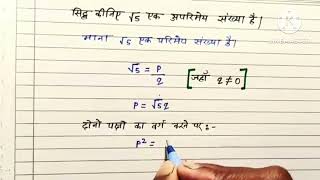 सिद्ध कीजिए √5 एक अपरिमेय संख्या है।
माना √5 एक परिमेय संख्या है।
√5 = P/q [जहाँ q ≠ 0]
P = √5 q
दोनो पक्षो का वर्ग करने पर :-
P² =